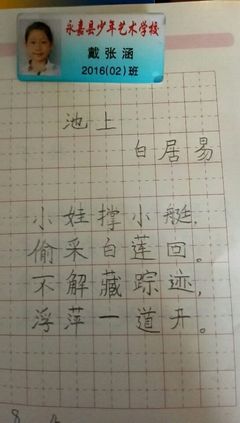 永嘉县少年艺术学校
戴张涵
2016(02)班
池上
白居易
小娃撑小艇,
偷采白莲回。
不解藏踪迹,
浮萍一道开。